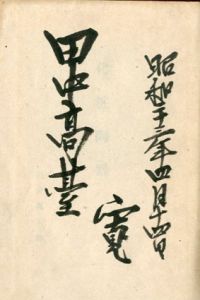 昭和十三年四月十四日
寛
田中高臺